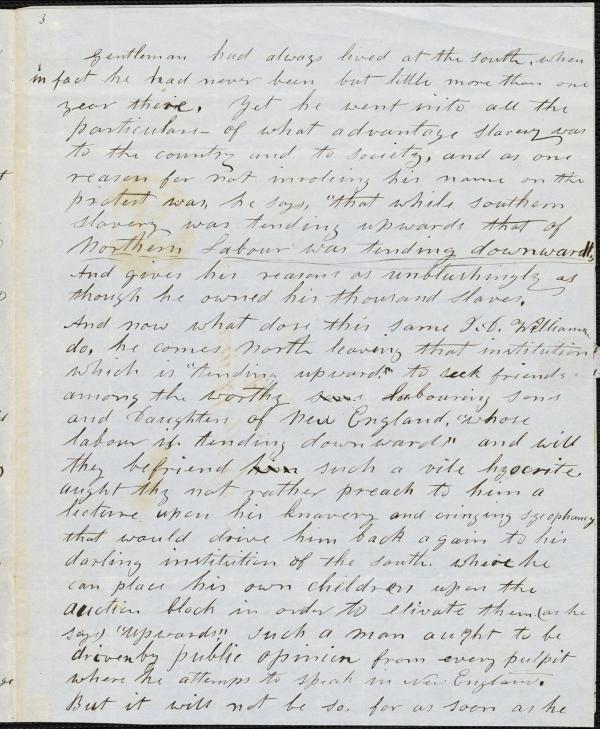 3
Gentleman had always lived at the south, when
in fact he had never been but little more than one
year there. Yet he went into all the
particulars of what advantage slavery was
to the country and to society, and as one
reason for not involving his name on the
protest was, he says, "that while southern
slavery was tending upwards that of
Northern Labour was tending downward",
And gives his reasons as unblushingly as
though he owned his thousand slaves.
And now what dose this same Williamson
do, he comes North leaving that institution
which is "tending upwards" to seek friends
among the worthy sons labouring sons
and Daughters of New England, "whose
labour is tending downwards" and will
they befriend him such a vile hypocrite,
aught thy not rather preach to him a
lecture upon his knavery and cringing sycophancy
that would drive him back again to his
darling institution of the south where he
can place his own children upon the
auction block in order to elivate them (as he
says) "upwards" such a man aught to be
driven by public opinion from every pulpit
where he attemps to speak in New England.
But it will not be so, for as soon as he